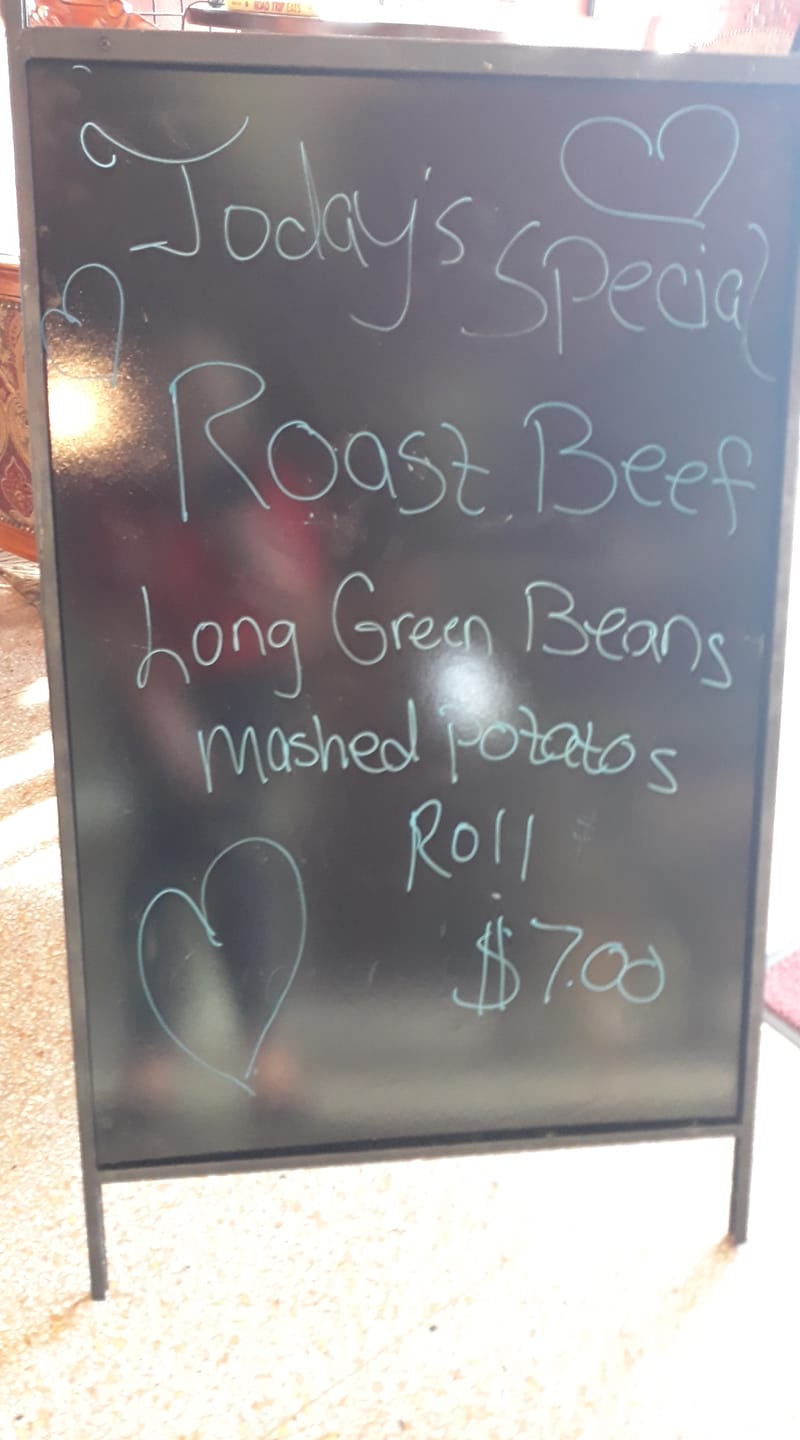 ROAD TRIP EATS
Today's Special
Roast Beef
Long Green Beans
mashed potatos
Roll
$7.00